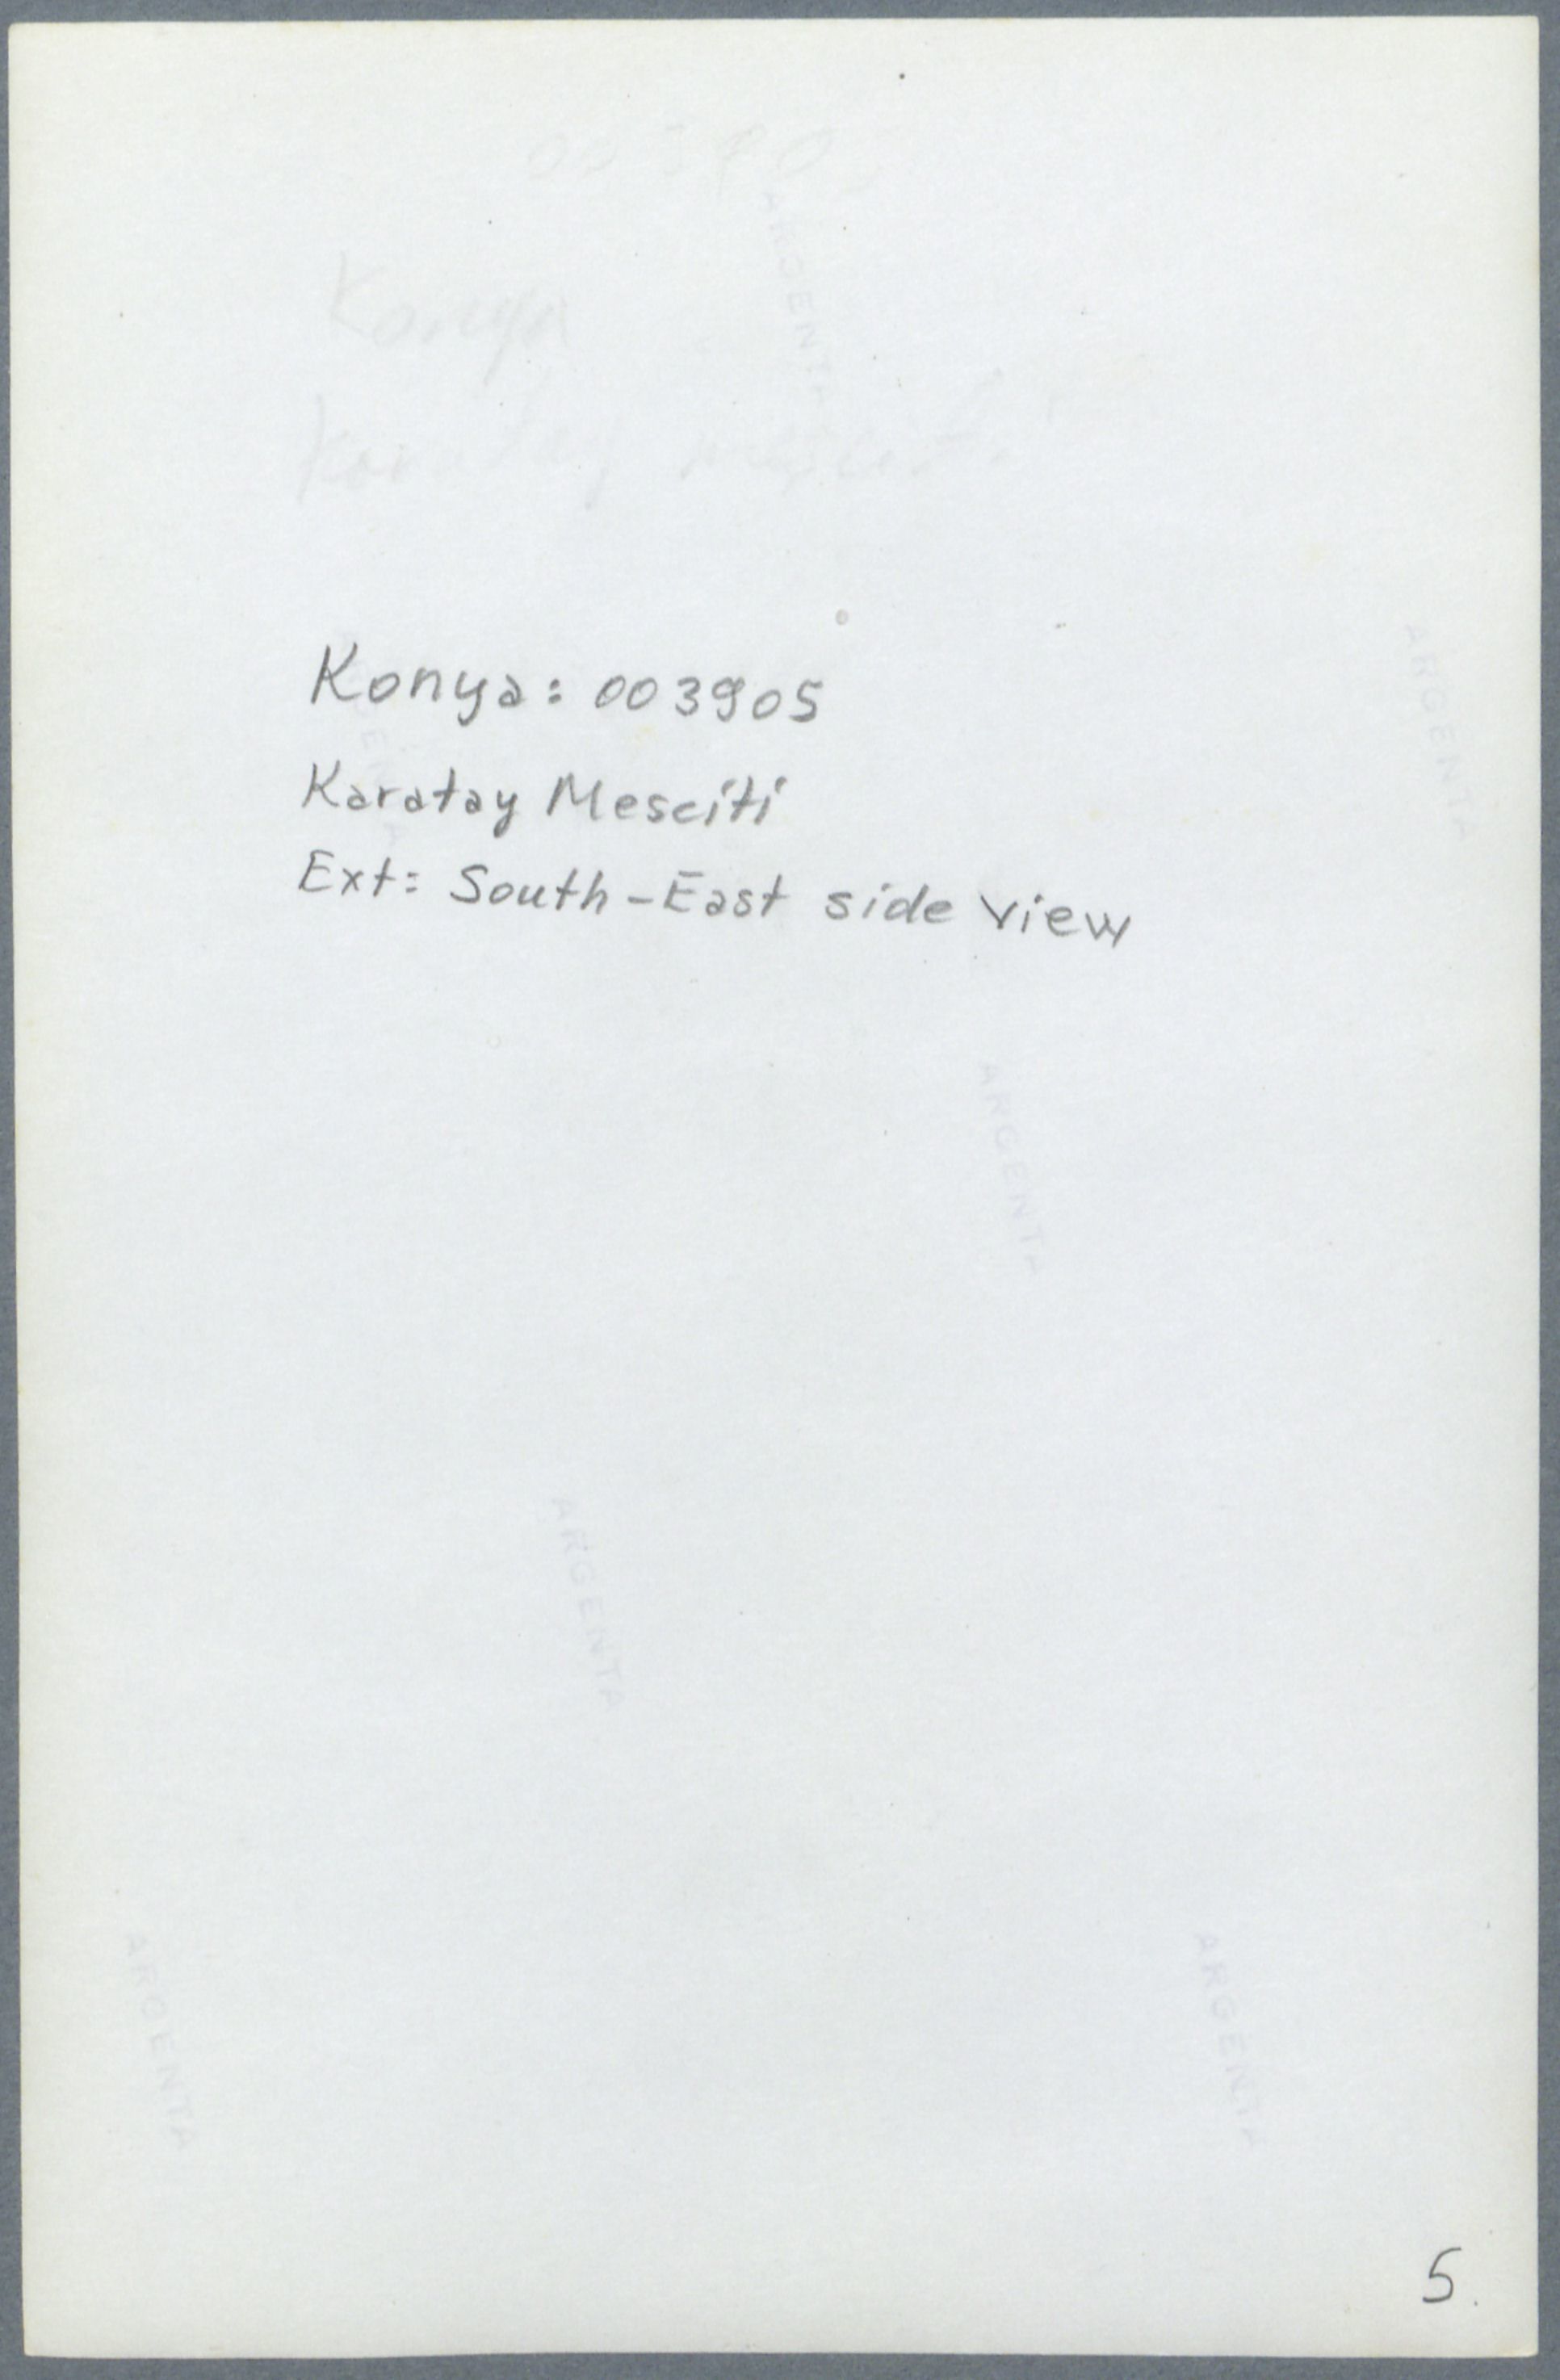 Konya
Konya: 003905
Karatay Mesciti
Ext: South-East side view
ARGENTA
ARGENTA
ARGENTA
ARGENTA
ARGENTA
ARGENTA
5.